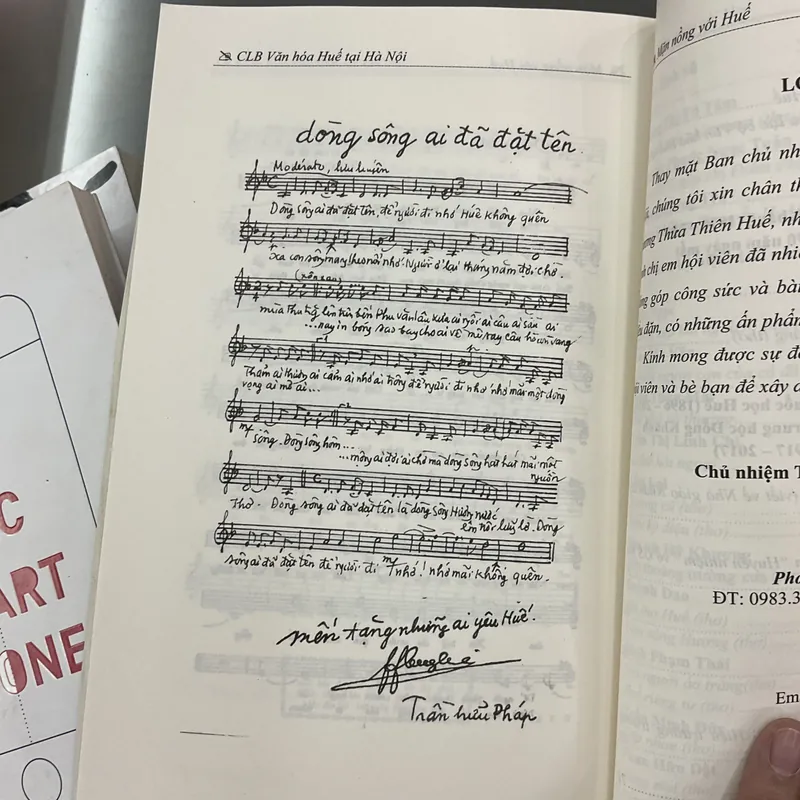 CLB Văn hóa Huế tại Hà Nội
dòng sông ai đã đặt tên
Moderato, lưu luyến
Dòng sông ai đã đặt tên, để người đi nhớ Huế không quên
Xa con sông mang theo nỗi nhớ. Người ở lại tháng năm đợi chờ.
mùa thu
bến Phu Văn Lâu
ai ngồi ai câu ai sầu ai
Thảm ai thương ai cảm ai nhớ ai trông để người đi nhớ nhớ mãi một dòng
vọng ai mơ ai...
mp sông. Dòng sông hôm...
...mộng ai đợi ai chờ mà dòng sông hát hát mãi một
nguồn
Thơ. Dòng sông ai đã đặt tên là dòng sông Hương nước
êm
lơ. Dòng
sông ai đã đặt tên để người đi nhớ! nhớ mãi không quên.
mp
mến tặng những ai yêu Huế.
Trần Hữu Pháp
Mặn nồng với Huế
Thay mặt Ban chủ nh
chúng tôi xin chân th
Thừa Thiên Huế, nh
chị em hội viên đã nhi
góp công sức và bà
dặn, có những ấn phẩm
Kính mong được sự đ
viên và bè bạn để xây d
Chủ nhiệm T
Pho
ĐT: 0983.3
Em
C
ART
ONE